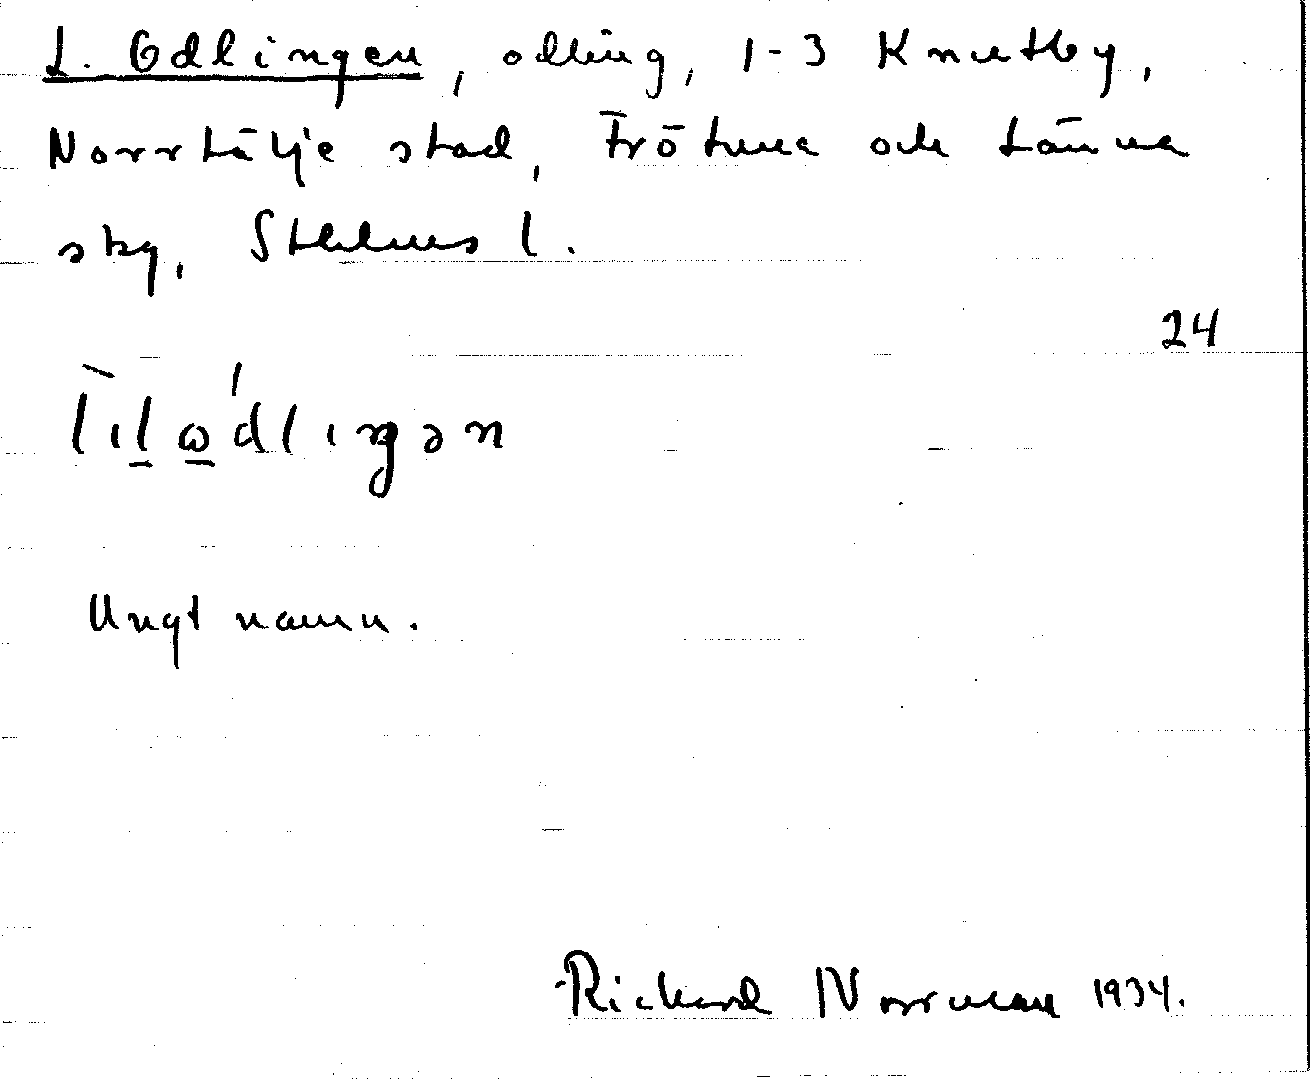 L. Odlingen, odling, 1-3 Knutby,
Norrtälje stad, Frötuna och Länna
sky, Sthlms l.
24
Ungt namn.
Richard Norrman 1934.